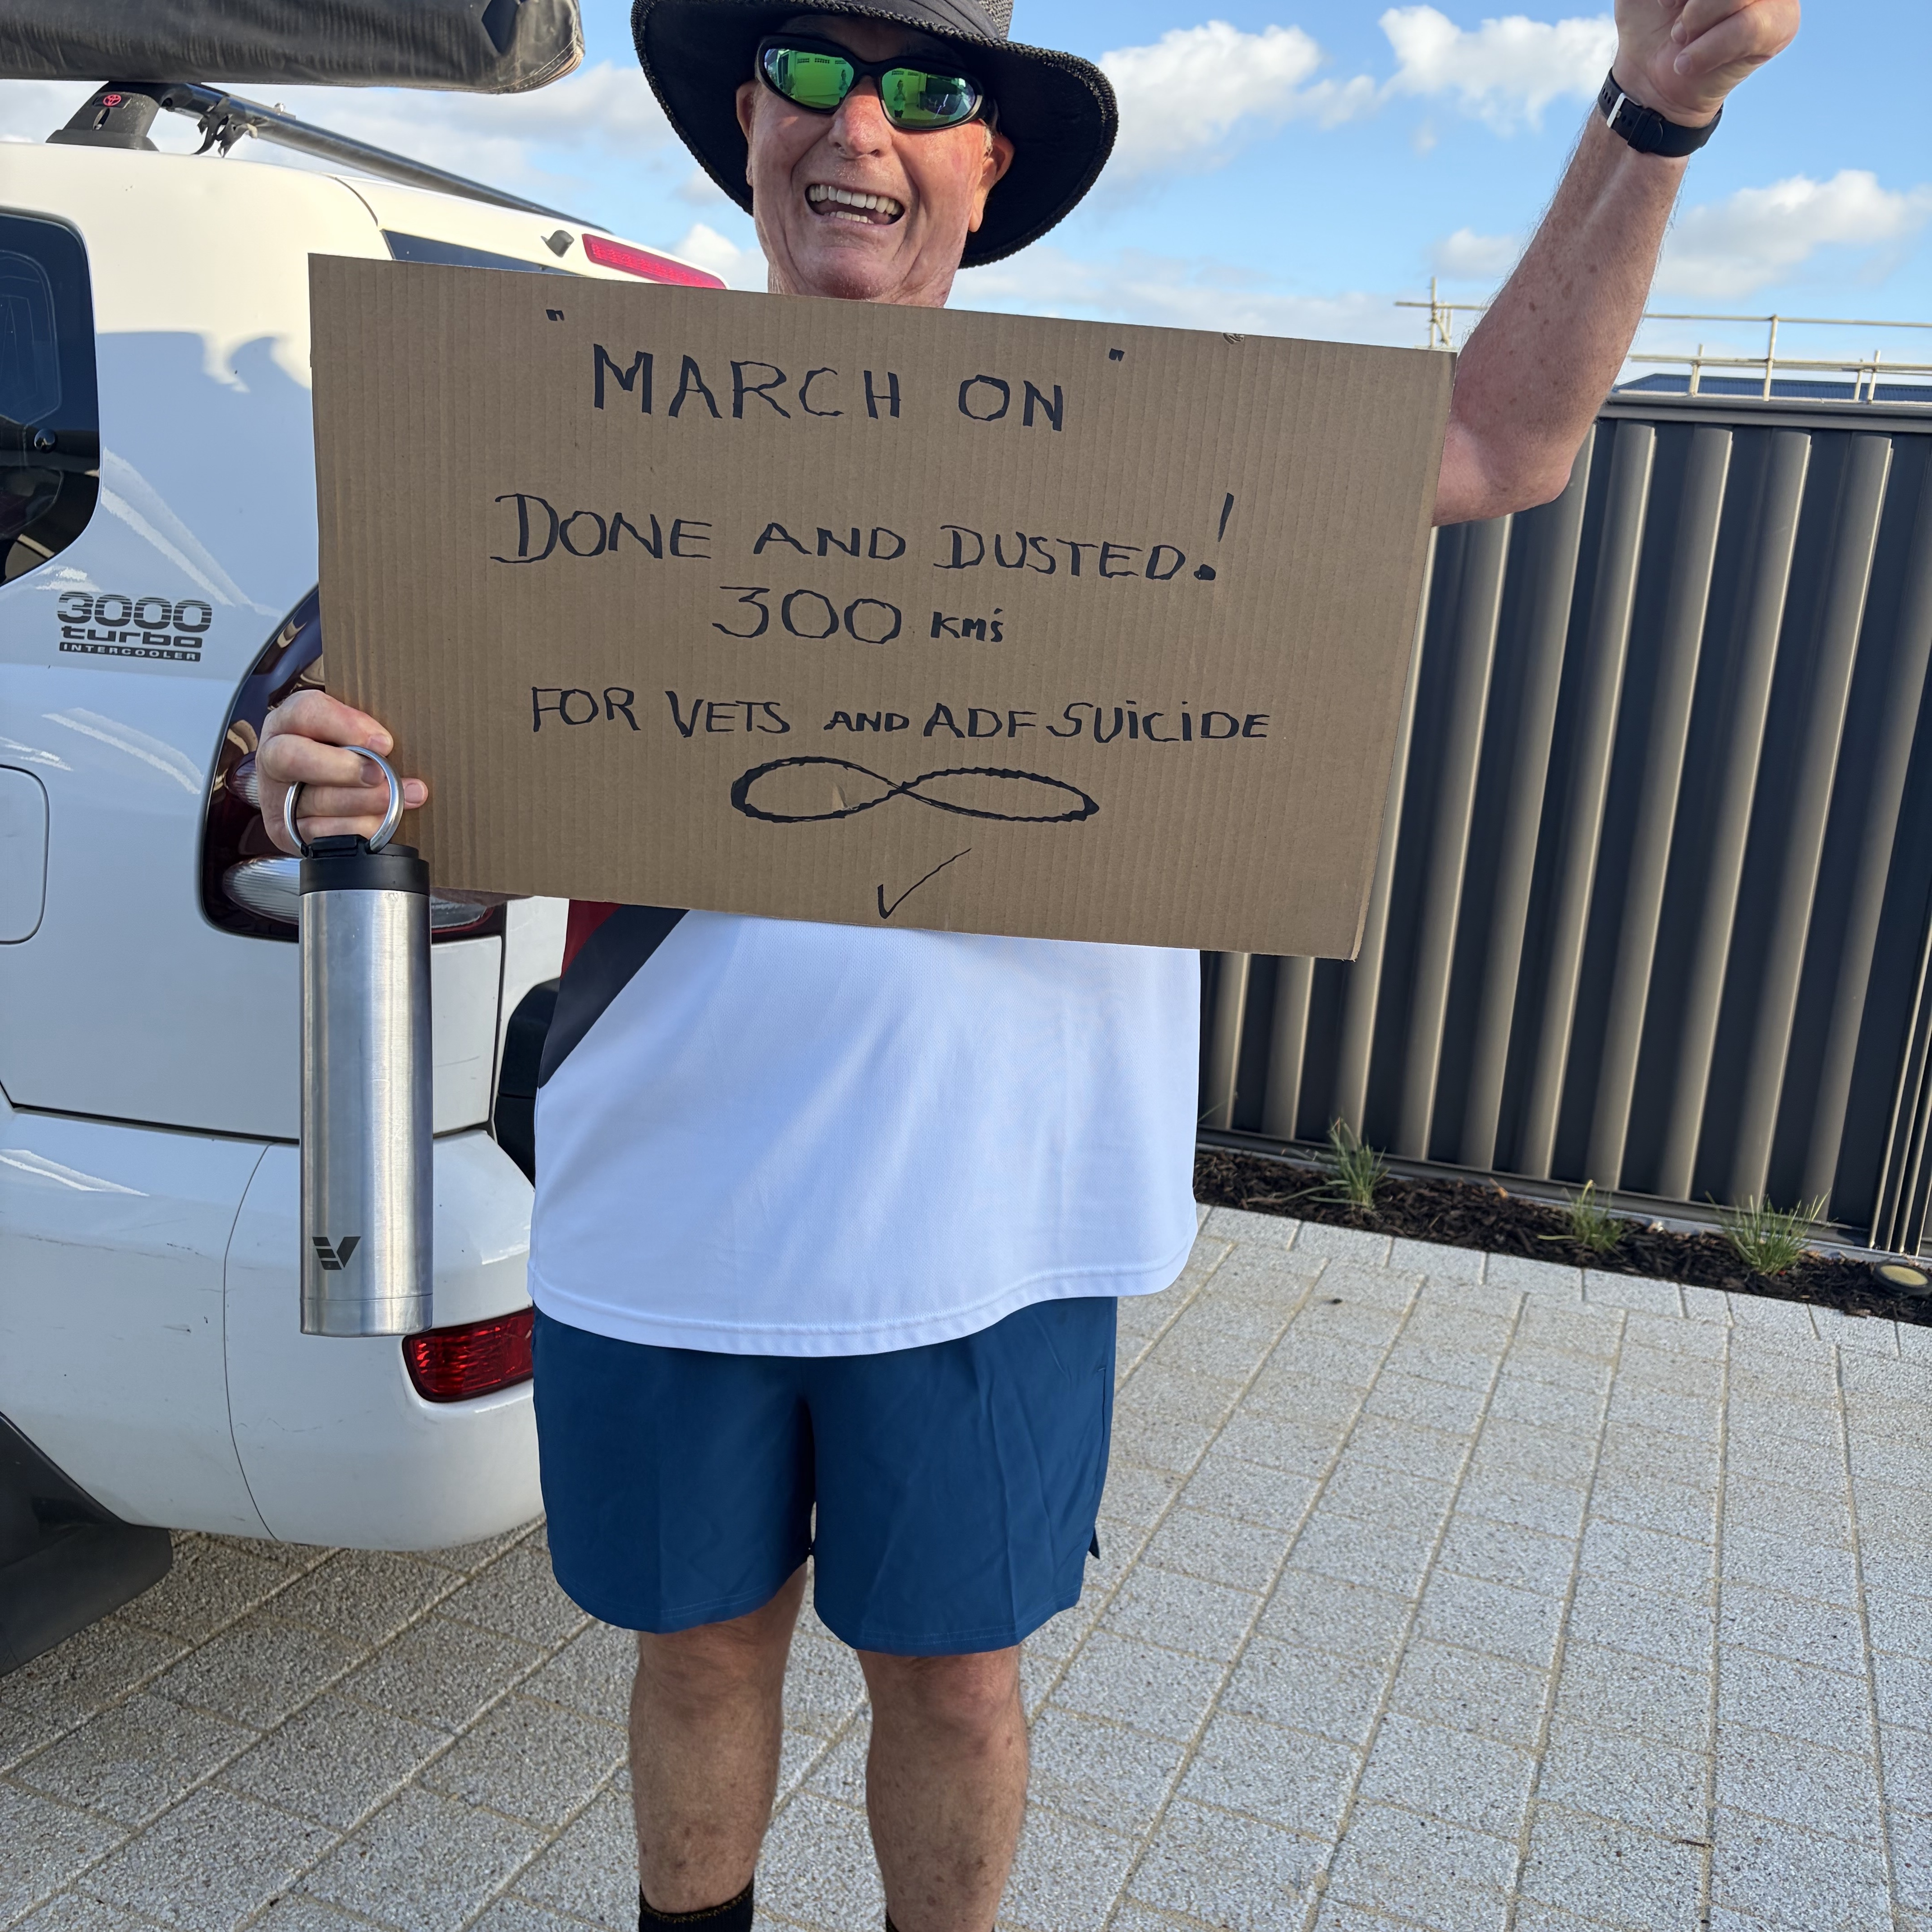 "MARCH ON"
DONE AND DUSTED!
300 KM'S
FOR VETS AND ADF SUICIDE
3000
turbo
INTERCOOLER